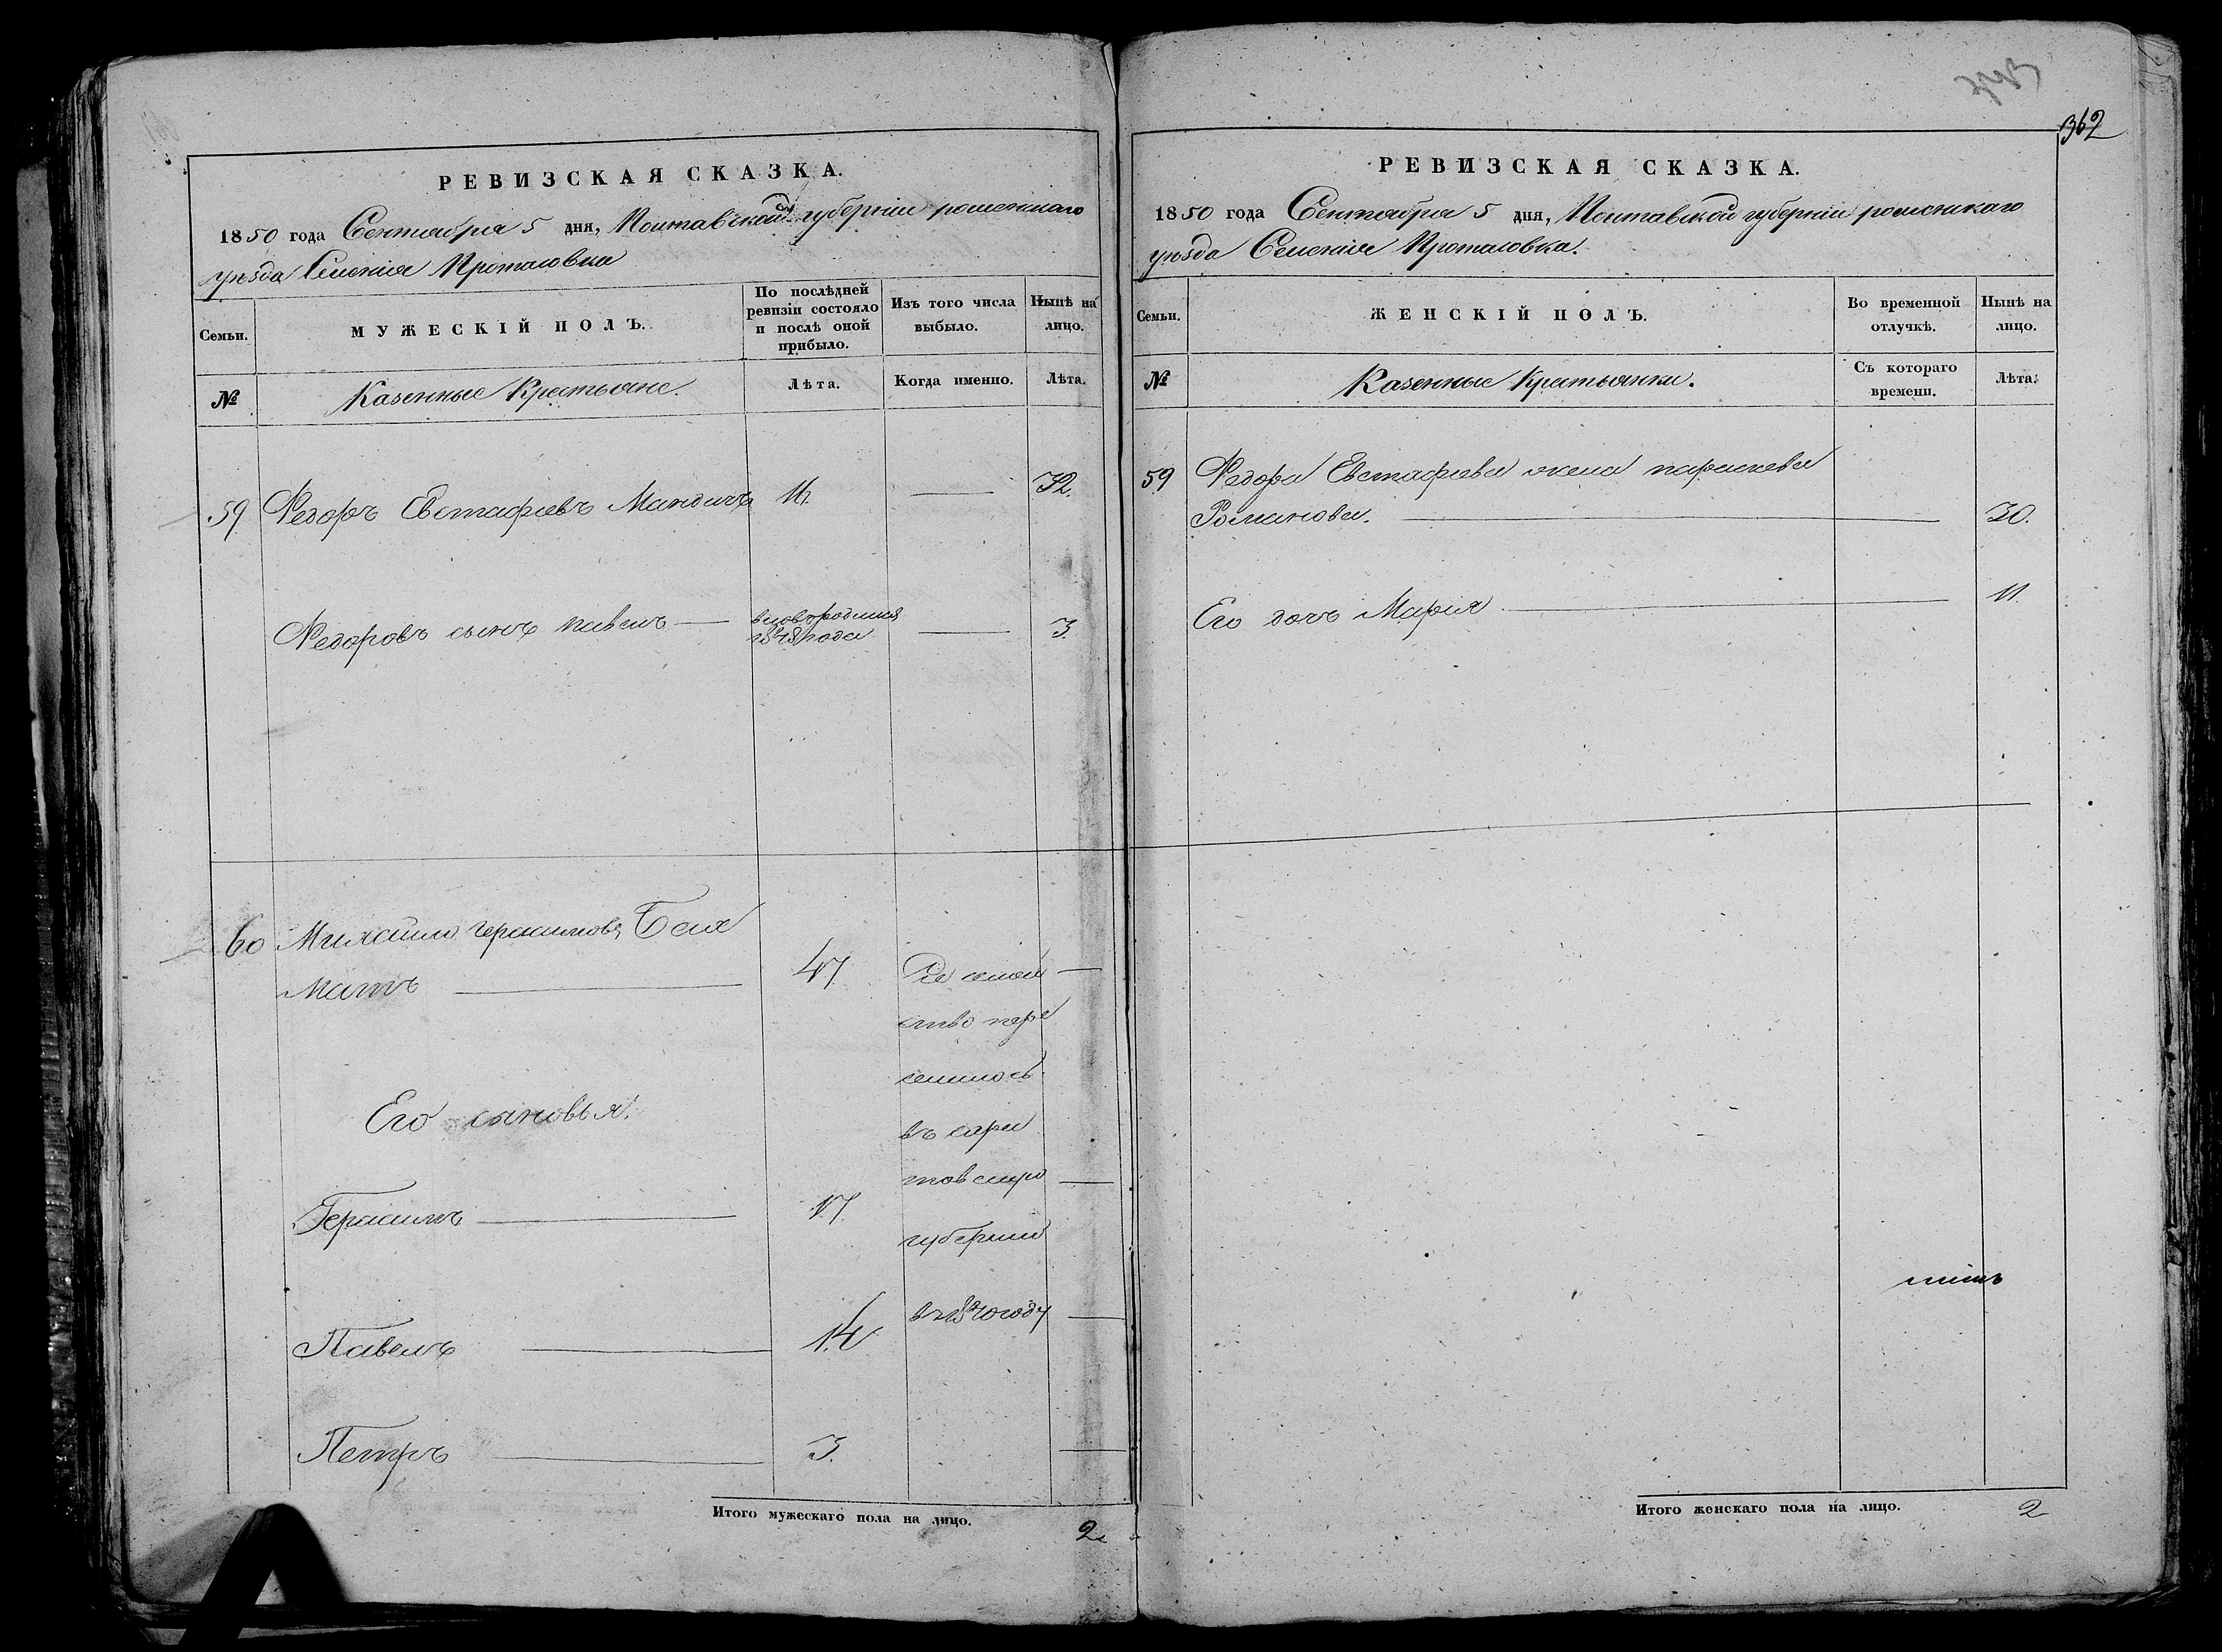 РЕВИЗСКАЯ СКАЗКА.
1850 года Сентября 5 дня, Полтавской губерніи роменскаго
уѣзда Селенія Протасовка
Семьи.
МУЖЕСКІЙ ПОЛЪ.
По послѣдней ревизіи состояло и послѣ оной прибыло.
Изъ того числа выбыло.
Нынѣ на лицо.
№
Казенные Крестьяне.
Лѣта.
Когда именно.
Лѣта.
59 Федоръ Евстафіевъ 32.
Федоровъ сынъ павелъ года 3.
60 Михайло герасимовъ
47 Все семей
ство пере
селилось
Его сыновья.
въ сара
товскую
Герасимъ 17.
губернію
въ 1840 году
Павелъ 14
Петръ 3.
Итого мужескаго пола на лицо. 2
362
РЕВИЗСКАЯ СКАЗКА.
1850 года Сентября 5 дня, Полтавской губерніи роменскаго
уѣзда Селенія Протасовка.
Семьи.
ЖЕНСКІЙ ПОЛЪ.
Во временной отлучкѣ.
Нынѣ на лицо.
№
Казенные Крестьянки.
Съ котораго времени.
Лѣта.
59 Федора Евстафіева жена параскева
Романова. 30.
Его дочь Марія 11.
Итого женскаго пола на лицо. 2